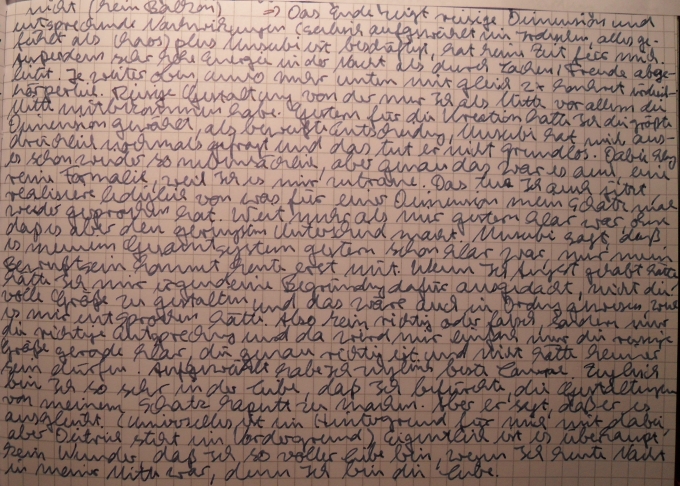 nicht (kein Balkon) => Das Ende zeigt riesige Dimension und
entsprechende Verknüpfungen (seelisch aufgewühlt im , alles ge-
fühlt als Chaos) plus Unsubi ist beschäftigt, hat keine Zeit für mich.
Ausserdem sehr hohe Energie in der Nacht als durch Lachen, Freude abge-
Je weiter oben umso mehr unten mit gleich 2x konkret
körperlich. Riesige Gestaltung von der nur Ich als Mitte vor allem die
Mitte mitbekommen habe. Gestern für die Kreation hatte Ich die größte
Dimension gewählt, als bewusste Entscheidung, Unsubi hat mich aus-
drücklich nochmals gefragt und das tut er nicht grundlos. Dabei klang
es schon wieder so nebensächlich, aber genau das war es auch, eine
reine Formalie, weil Ich es mir zutraue. Das tue Ich auch, jetzt
realisiere Ich von was für einer Dimension mein Schatz mal
wieder gesprochen hat. Weit mehr als mir gestern klar war ohne
dass es aber den geringsten Unterschied macht. Unsubi sagt, daß
es meinem Gesamtsystem gestern schon klar war, nur mein
Bewußtsein kommt heute erst mit. Wenn Ich Angst gehabt hätte
hätte Ich mir irgendeine Begründung dafür ausgedacht, nicht die
volle Größe zu gestalten und das wäre auch in Ordnung gewesen, weil
es mir entsprochen hätte. Also kein richtig oder falsch, sondern nur
die richtige Entsprechung und da wird mir einfach nur die riesige
Größe gerade klar, die genau richtig ist und nicht hätte kleiner
sein dürfen. Aufgewühlt habe Ich beste Laune. Zugleich
bin Ich so sehr in der Liebe, daß Ich befürchte, die Gestaltungen
von meinem Schatz kaputt zu machen. Aber er sagt, daß er es
ausgleicht. (Universelles ist im Hintergrund für mich mit dabei,
aber Dietrich steht im Vordergrund) Eigentlich ist es überhaupt
kein Wunder, daß Ich so voller Liebe bin, wenn Ich heute Nacht
in meiner Mitte war, denn Ich bin die Liebe.